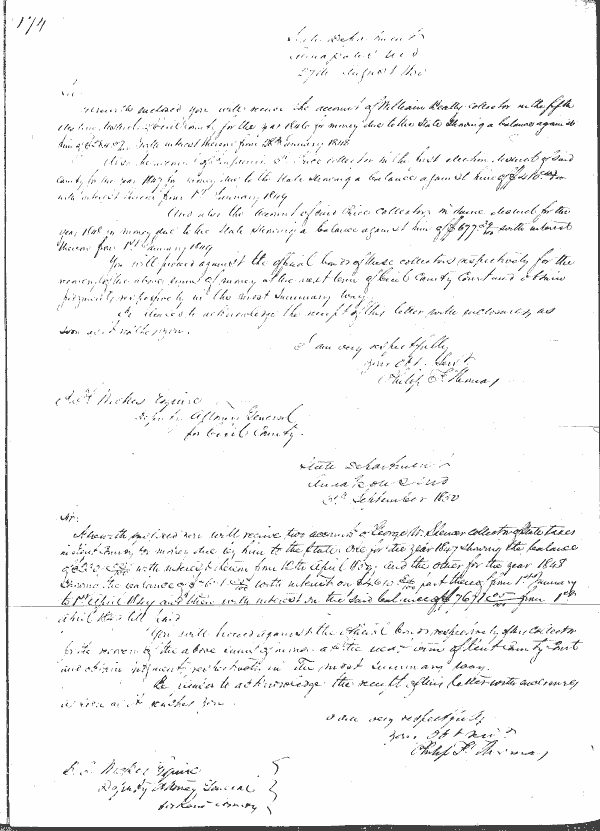 174
State Department
Annapolis Md
27th August 1850
Sir
Herewith enclosed you will receive the account of William Really collector in the fifth
election district of Cecil County for the year 1846 for money due to the State Showing a balance against
him of with interest thereon from 28th January 1848
Also the account of Price collector in the first election district of Said
County for the year 1847 for money due to the State shewing a balance against him of $
with interest thereon from 1st January 1849
And also the account of Price Collector in same district for the
year 1848 for money due to the State Shewing a balance against him of $677 with interest
thereon from 1st January 1849
You will proceed against the official bonds of these collectors respectively for the
recovery of the above sums of money at the next term of Cecil County Court and obtain
judgments respectively in the most Summary way.
Be pleased to acknowledge the receipt of this letter with enclosures, as
soon as it reaches you.
I am very respectfully
your Obt. Servt
Philip F. Thomas
Nickes Esquire
Deputy Attorney General
for Cecil County.
State Department
Annapolis Md
September 1850
Sir.
Herewith enclosed you will receive two accounts of George W. Collector of State taxes
in Kent County for money due by him to the State. One for the year 1847 shewing the balance
of with interest thereon from 10th April and the other for the year 1848
Shewing the balance of $ with interest on part thereof from 1st January
to 1st April and then with interest on the said balance of $ from 1st
April till paid
You will proceed against the official bonds respectively of this Collector
for the recovery of the above sums of money at the next term of Kent County Court
and obtain judgments respectively in the most summary way.
Be pleased to acknowledge the receipt of this letter with enclosures
as soon as it reaches you.
I am very respectfully
your Obt Servt
Philip F. Thomas
Esquire
Deputy Attorney General
for Kent County